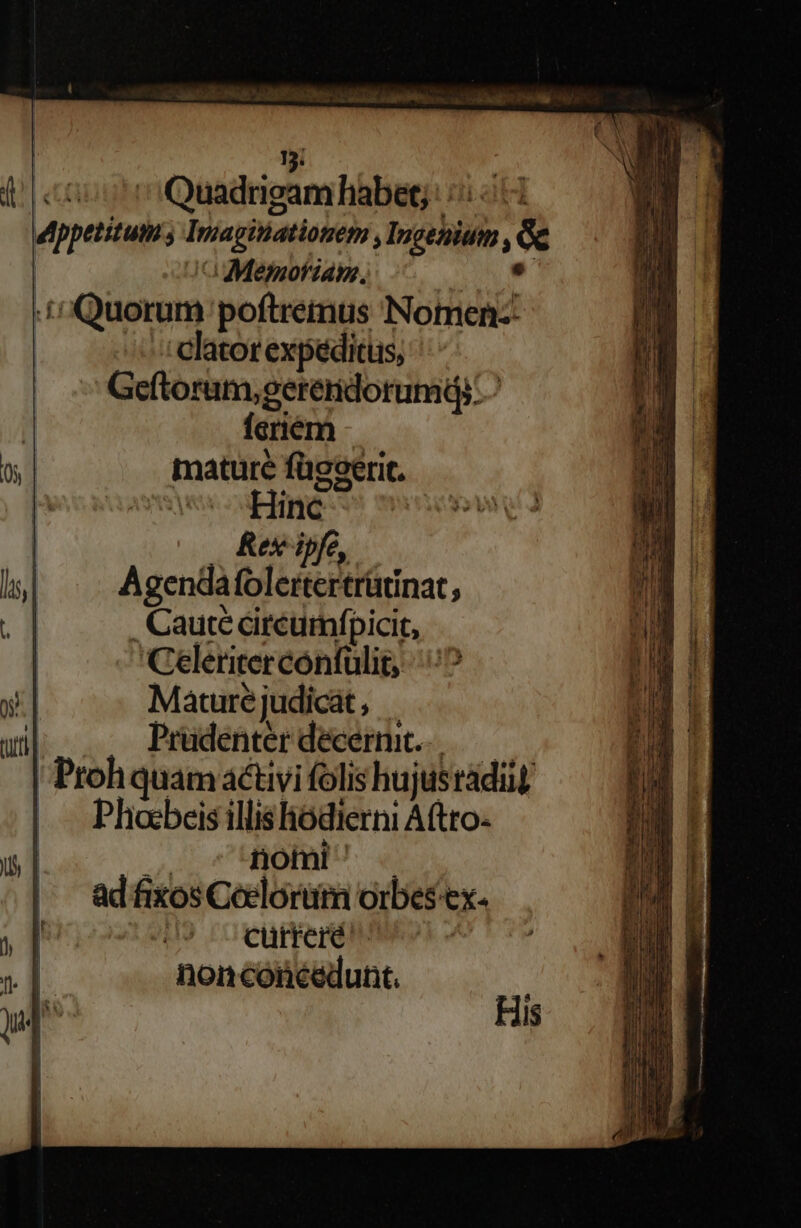 13.
Quadrigam habet;
Appetitum, Imaginationem, Ingenium, &
Memoriam.
Quorum poſtremus Nomen-
clator expeditus,
Geſtorum, gerendorumq́;
ſeriem
maturè ſuggerit.
Hinc
Rex ipſe,
Agenda ſolerter trutinat,
Cautè circumſpicit,
Celeriter conſulit,
Maturè judicat,
Prudentèr decernit.
Proh quam activi ſolis hujus radii!
Phœbeis illis hodierni Aſtro-
nomi
ad fixos Cœlorum orbes ex-
currere
non concedunt.
His